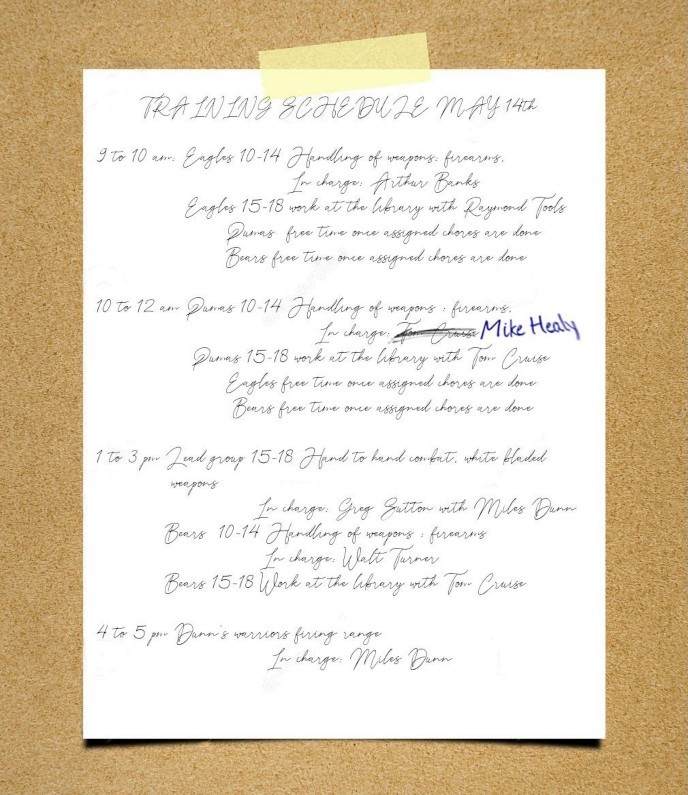 TRAINING SCHEDULE MAY 14th
9 to 10 am. Eagles 10-14 Handling of weapons: firearms.
In charge: Arthur Banks
Eagles 15-18 work at the library with Raymond Tools
Pumas free time once assigned chores are done
Bears free time once assigned chores are done
10 to 12 am Pumas 10-14 Handling of weapons : firearms.
In charge: Tom Cruise Mike Healy
Pumas 15-18 work at the library with Tom Cruise
Eagles free time once assigned chores are done
Bears free time once assigned chores are done
1 to 3 pm Lead group 15-18 Hand to hand combat, white bladed
weapons
In charge: Greg Sutton with Miles Dunn
Bears 10-14 Handling of weapons : firearms
In charge: Walt Turner
Bears 15-18 Work at the library with Tom Cruise
4 to 5 pm Dunn's warriors firing range
In charge: Miles Dunn